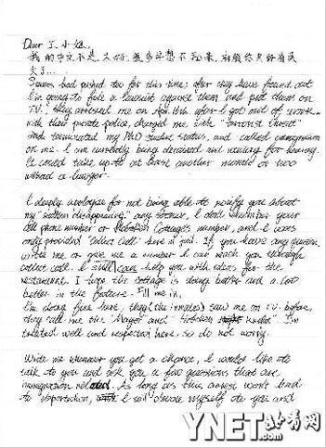 Dear J. 小姐,
我的中文不是太好, 很多字想不起來, 所以你只好看英
文了...
had pushed too far this time, after they have found out
I'm going to file a lawsuit against them and put them on
TV. They arrested me on after I got out of work
with their private police, charged me with "terrorist threat"
and terminated my PhD student status, and called immigration
on me. I am currently being detained and waiting for hearing.
It could take up to at least another month or two
without a lawyer.
I deeply apologize for not being able to notify you about
my "sudden disappearing" any sooner, I don't remember your
cell phone number or Hoboken Cottage's number, and I was
only provided "collect call" here in jail. If you have any
write me or give me a number I can reach you through
collect call. I still can help you with ideas for the
restaurant. I hope the cottage is doing better and a lot
better in the future. Fill me in.
I'm doing fine here, they (the inmates) saw me on TV. before,
they call me the "Mayor" and "Hoboken". I'm
treated well and respected here, so do not worry.
Write me whenever you get a chance, I would like to
talk to you and ask you a few questions that are
immigration related. As long as this arrest won't lead
to deportation, I will devote myself to you and
YNET 北青网